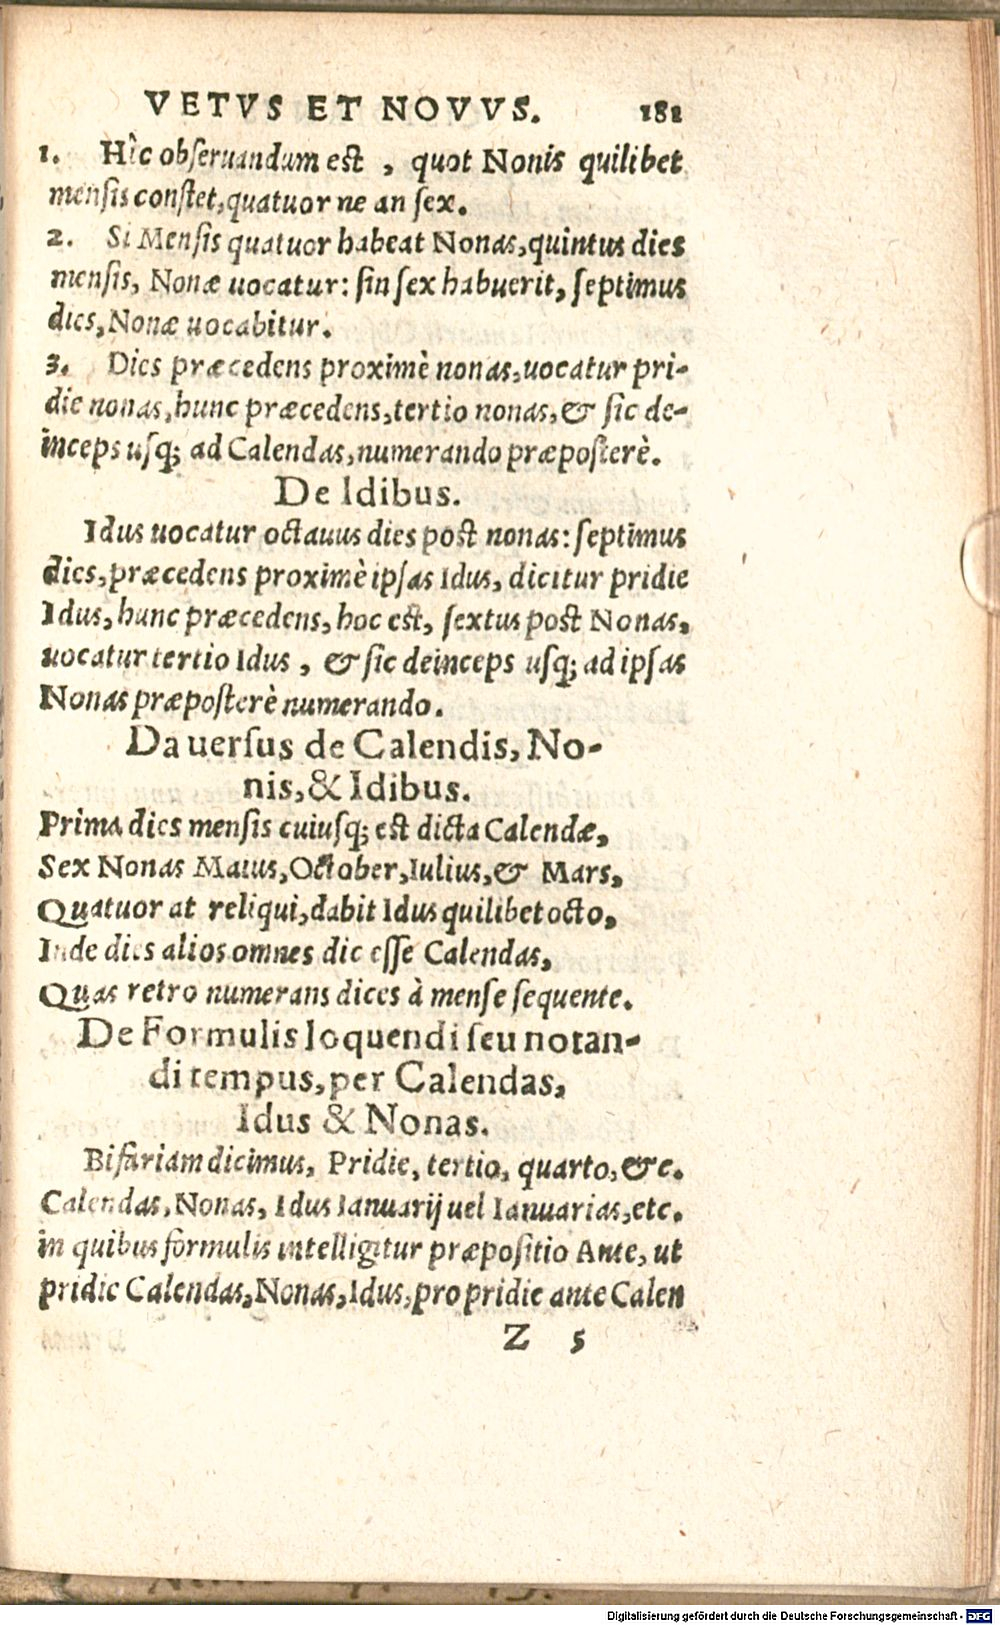 VETVS ET NOVVS. 181
1. Hîc obseruandum est , quot Nonis quilibet
mensis constet, quatuor ne an sex.
2. Si Mensis quatuor habeat Nonas, quintus dies
mensis, Nonæ uocatur: sin sex habuerit, septimus
dies, Nonæ uocabitur.
3. Dies præcedens proximè nonas, uocatur pri-
die nonas, hunc præcedens, tertio nonas, & sic de-
inceps usq; ad Calendas, numerando præposterè.
De Idibus.
Idus uocatur octauus dies post nonas: septimus
dies, præcedens proximè ipsas Idus, dicitur pridie
Idus, hunc præcedens, hoc est, sextus post Nonas,
uocatur tertio Idus , & sic deinceps usq; ad ipsas
Nonas præposterè numerando.
Da uersus de Calendis, No-
nis, & Idibus.
Prima dies mensis cuiusq; est dicta Calendæ,
Sex Nonas Maius, October, Iulius, & Mars,
Quatuor at reliqui, dabit Idus quilibet octo,
Inde dies alios omnes dic esse Calendas,
Quas retro numerans dices à mense sequente.
De Formulis loquendi seu notan-
di tempus, per Calendas,
Idus & Nonas.
Bifariam dicimus, Pridie, tertio, quarto, &c.
Calendas, Nonas, Idus Ianuarij uel Ianuarias, etc.
in quibus formulis intelligitur præpositio Ante, ut
pridie Calendas, Nonas, Idus, pro pridie ante Calen
Z 5
Digitalisierung gefördert durch die Deutsche Forschungsgemeinschaft - DFG